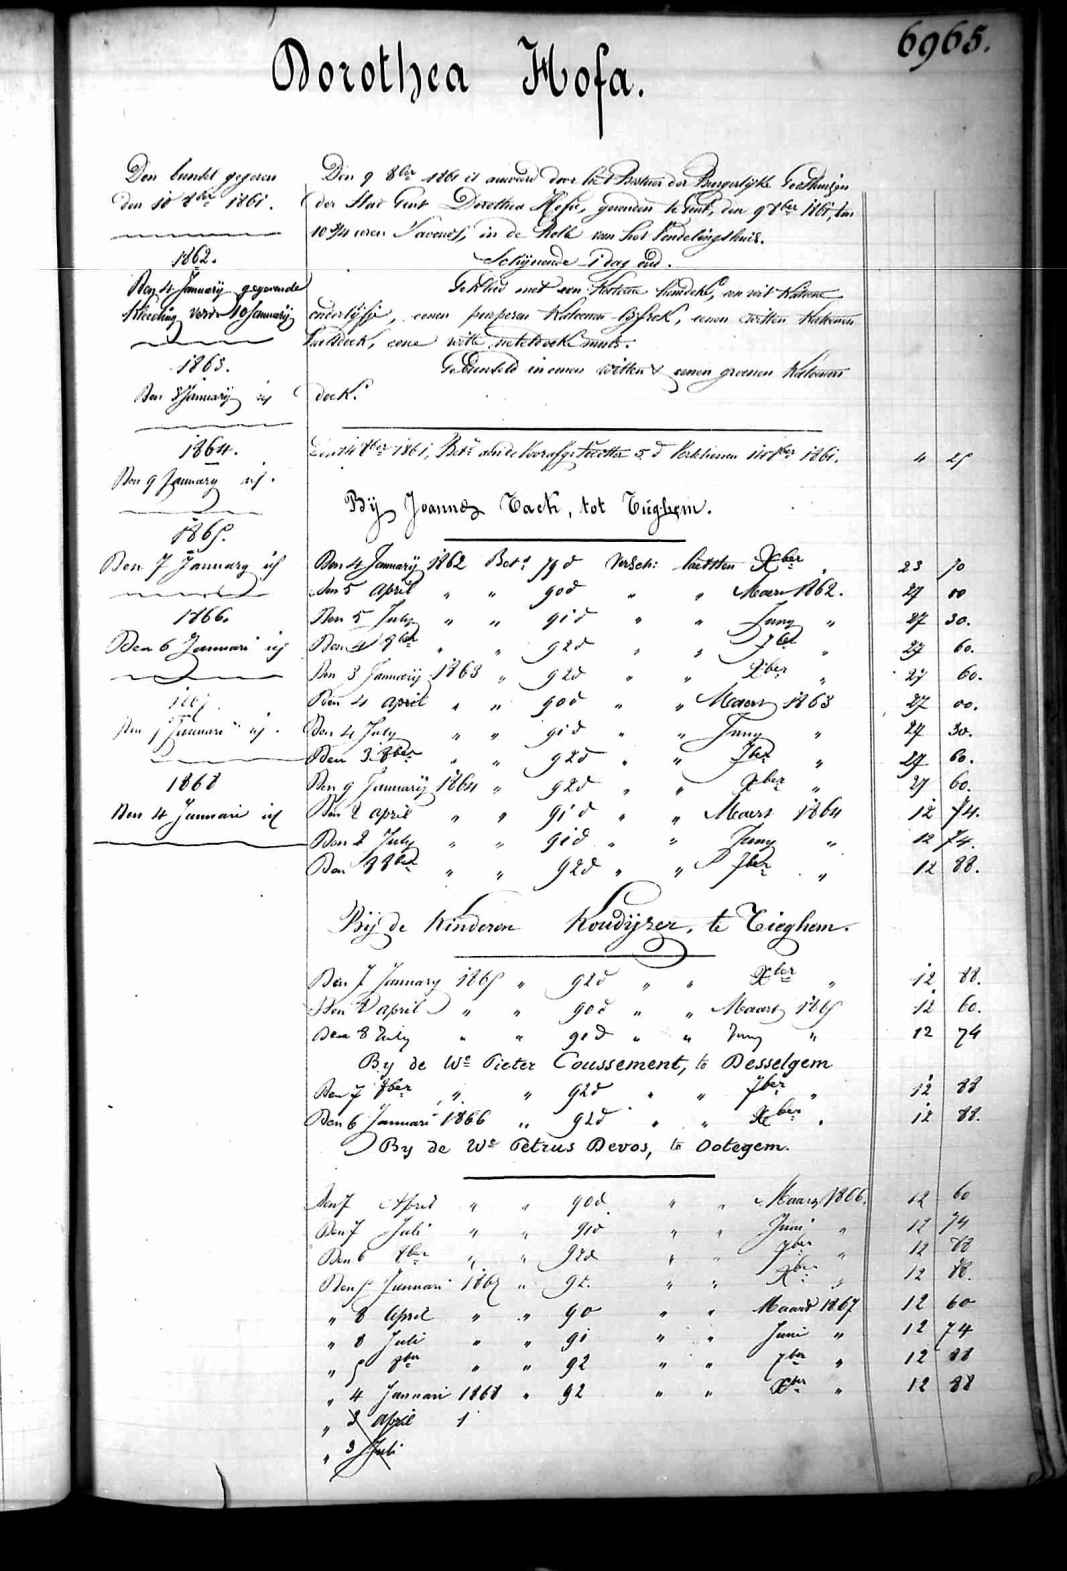 6965.
Dorothea Hofa.
Den bundel gegeven
den 10 8ber 1861.
1862.
Den 4 January gegevende
kleeding voor 10 January
1863.
Den 8 January id
1864.
Den 9 January id.
1865.
Den 7 January id
1866.
Den 6 Januari id
1867.
Den 5 Januari id.
1868
Den 4 Januari id
Den 9 8ber 1861 is aanveerd door het Bestuer der Burgerlijke Godshuizen
der Stad Gent Dorothea Hofa, gevonden te Gent, den 9 8ber 1861, ten
10 3/4 uren 's avonds, in de Rolle van het Vondelingshuis.
Schijnende 1 dag oud.
Gekleed met een Katoene hemdeke, een wit Katoene
onderlijfje, eenen purperen Katoenen lijfrok, eenen witten Katoenen
halsdoek, eene witte muts.
Gebunseld in eenen witten & eenen groenen Katoenen
doek.
1861, 1861. 4 25
Bij Joannes Tack, tot Tieghem.
Den 4 January 1862 Bet. 79 d versch: laetsten Xber „ 23 70
den 5 April „ „ 90 d „ „ Maert 1862. 27 00
Den 5 July „ „ 91 d „ „ Juny „ 27 30.
Den 4 8ber „ „ 92 d „ „ 7ber „ 27 60.
Den 3 January 1863 „ 92 d „ „ Xber „ 27 60.
Den 4 April „ „ 90 d „ „ Maert 1863 27 00.
Den 4 July „ „ 91 d „ „ Juny „ 27 30.
Den 3 8ber „ „ 92 d „ „ 7ber „ 27 60.
Den 9 January 1864 „ 92 d „ „ Xber „ 27 60.
Den 2 April „ „ 91 d „ „ Maert 1864 12 74.
Den 2 July „ „ 91 d „ „ Juny „ 12 74.
Den 8ber „ „ 92 d „ „ 7ber „ 12 88.
Bij de Kinderen Koudijzer, te Tieghem.
Den 7 January 1865 „ 92 d „ „ Xber „ 12 88.
Den 8 April „ „ 90 d „ „ Maert 1865 12 60.
Den 8 July „ „ 91 d „ „ Juny „ 12 74
By de We Pieter Coussement, te Desselgem
Den 7 8ber „ „ 92 d „ „ 7ber „ 12 88
Den 6 Januari 1866 „ 92 d „ „ Xber „ 12 88.
By de We Petrus Devos, te Ootegem.
Den 7 April „ „ 90 d. „ „ Maart 1866. 12 60
Den 7 Juli „ „ 91 d „ „ Juni „ 12 74
Den 6 8ber „ „ 92 d „ „ 7ber „ 12 88
Den 5 Januari 1867 „ 92. „ „ Xber „ 12 88.
„ 8 April „ „ 90 „ „ Maart 1867 12 60
„ 8 Juli „ „ 91 „ „ Juni „ 12 74
„ 5 8ber „ „ 92 „ „ 7ber „ 12 88
„ 4 Januari 1868 „ 92 „ „ Xber „ 12 88
„ 3 April 1
„ 3 Juli